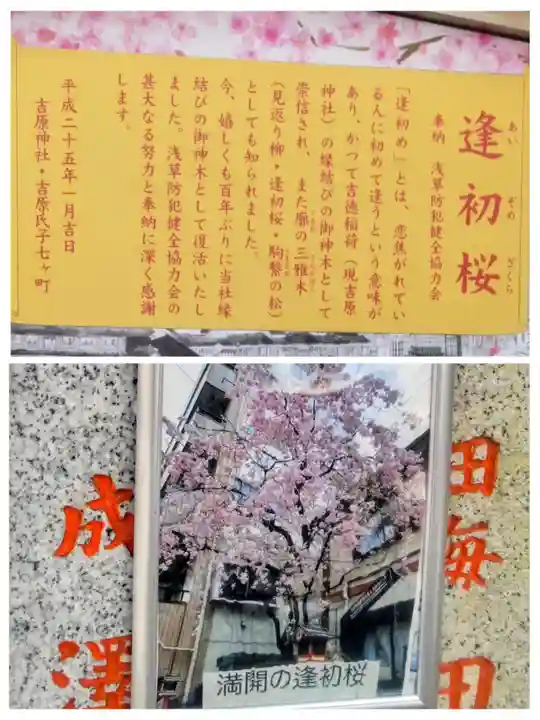 逢初桜
あい ぞめ ざくら
奉納 浅草防犯健全協力会
「逢初め」とは、恋焦がれてい
る人に初めて逢うという意味が
あり、かつて吉徳稲荷（現吉原
神社）の縁結びの御神木として
崇信され、また廓の三雅木
（見返り柳・逢初桜・駒繋の松）
としても知られました。
今、嬉しくも百年ぶりに当社縁
結びの御神木として復活いたし
ました。浅草防犯健全協力会の
甚大なる努力と奉納に深く感謝
します。
平成二十五年一月吉日
吉原神社・吉原氏子七ヶ町
田毎田
成澤
満開の逢初桜